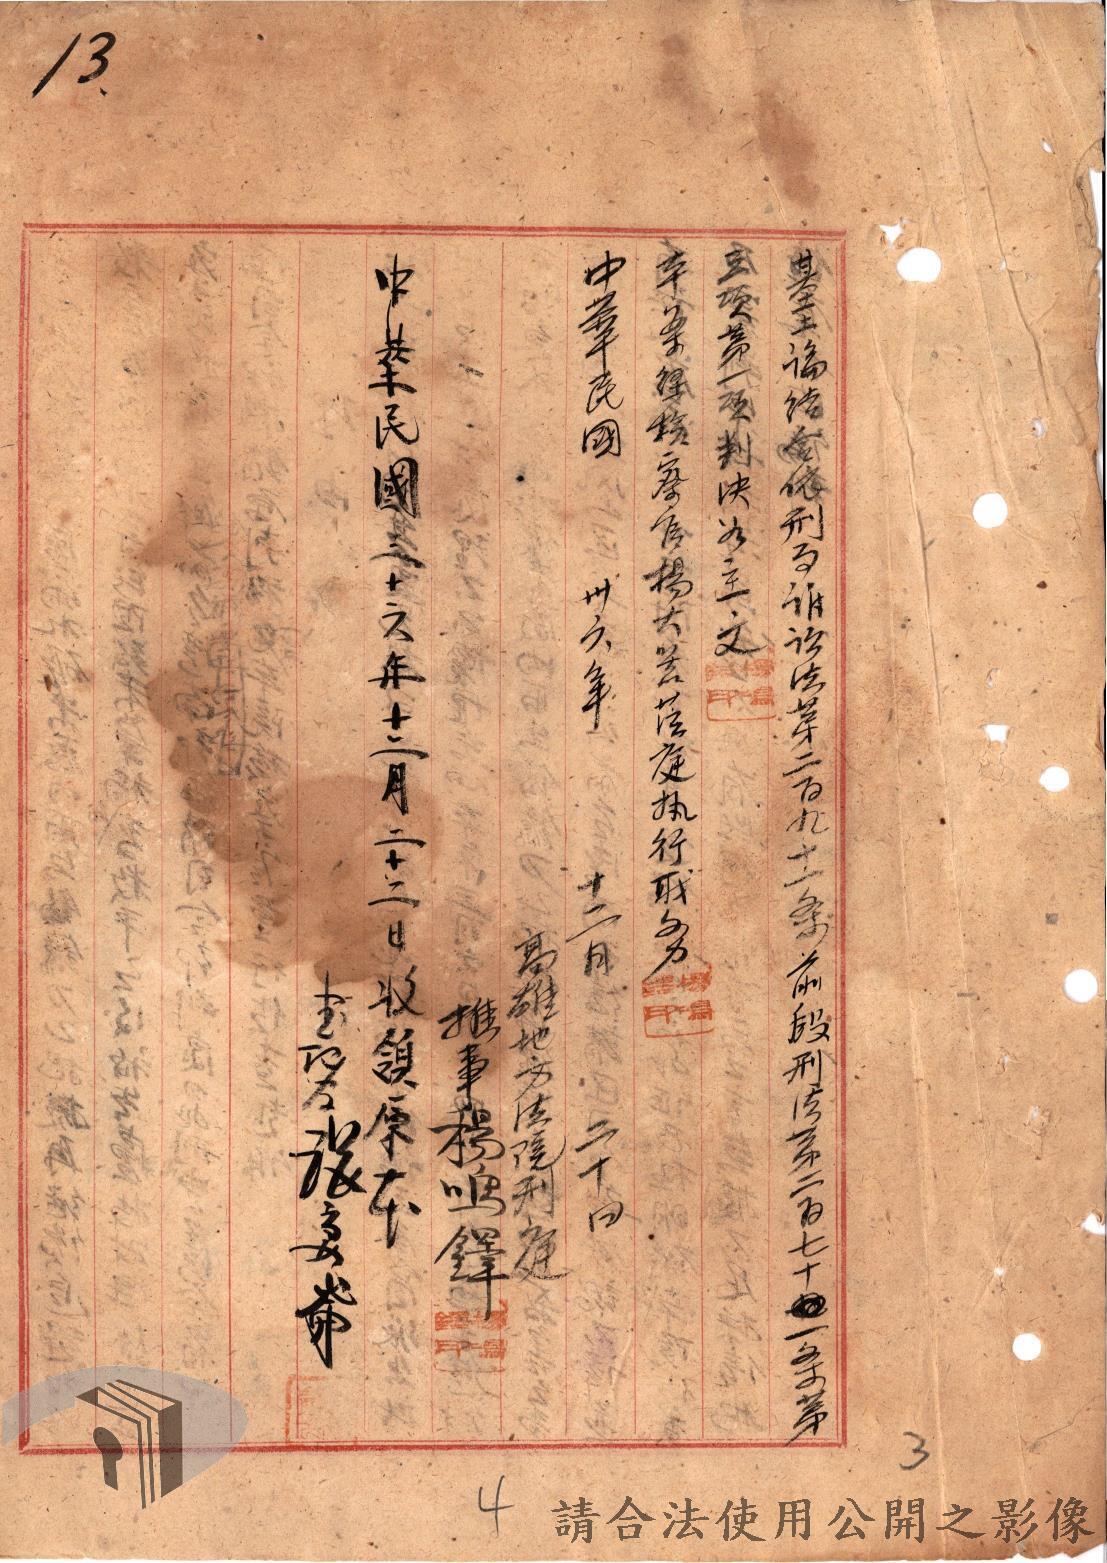 13
基上論結合依刑事訴訟法第二百九十一条前段刑法第二百七十一条第
三項第一項判决如主文
本案經檢察官楊大 莅庭执行职务
中華民國 卅六年 十二月 二十日
高雄地方法院刑庭
推事楊鳴鐸
中華民國三十六年十二月二十二日收領原本
書記官張
3
4
請合法使用公開之影像